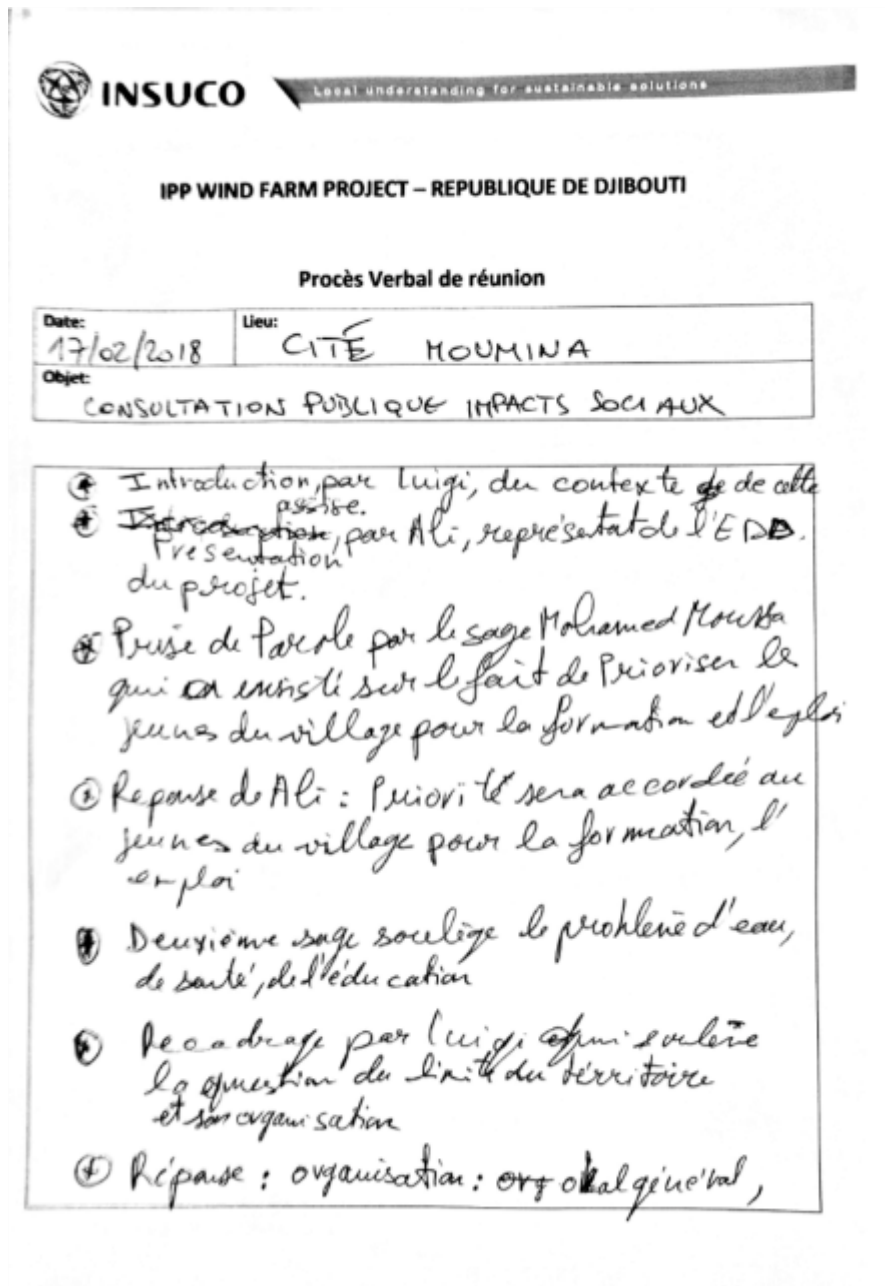 INSUCO
Local understanding for sustainable solutions
IPP WIND FARM PROJECT – REPUBLIQUE DE DJIBOUTI
Procès Verbal de réunion
Date:
17/02/2018
Lieu:
CITÉ MOUMINA
Objet:
CONSULTATION PUBLIQUE IMPACTS SOCIAUX
Introduction, par Luigi, du contexte de cette
assise.
Presentation, par Ali, représentat de l'EDD.
du projet.
Prise de Parole par le sage Mohamed Moussa
qui a ensisté sur le fait de Prioriser les
jeunes du village pour la formation et l'eploi
Reponse de Ali : Priorité sera accordée au
jeunes du village pour la formation, l'
emploi
Deuxième sage soulège le problème d'eau,
de santé, de l'éducation
Recadrage par Luigi qui soulève
la question du limite du térritoire
et son organisation
Réponse : organisation : okal général,